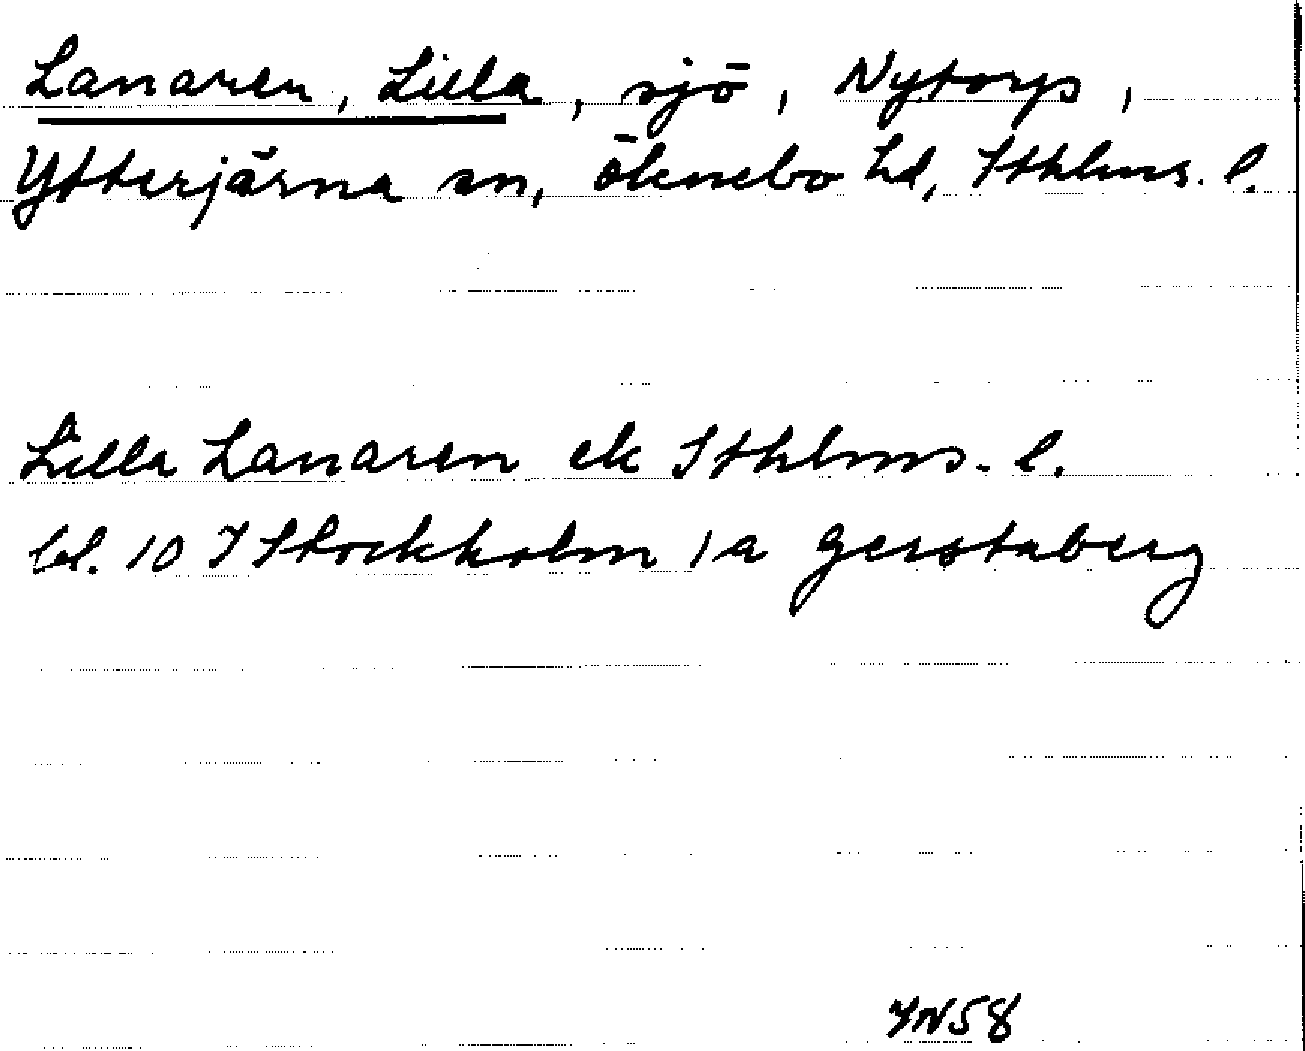 Lanaren, Lilla, sjö, Nytorp,
Ytterjärna sn, Öknebo hd, Sthlms. l.
Lilla Lanaren ek Sthlms. l.
bl. 10 I Stockholm 1a Gerstaberg